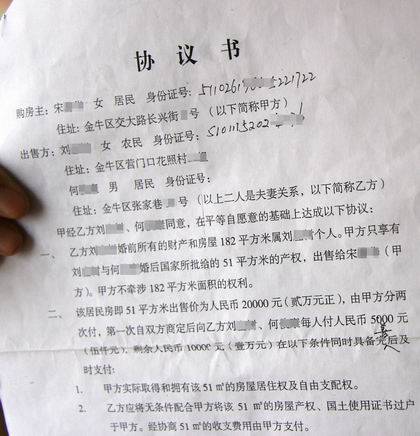 协 议 书
购房主：宋 女 居民 身份证号：
住址：金牛区交大路长兴街 号（以下简称甲方）
出售方：刘 女 农民 身份证号：
住址：金牛区营门口花照村
何 男 居民 身份证号：
住址：金牛区张家巷 号（以上二人是夫妻关系，以下简称乙方）
甲经乙方刘 、何 同意，在平等自愿意的基础上达成以下协议：
一、 乙方刘 婚前所有的财产和房屋 182 平方米属刘 个人。甲方只享有
刘 与何 婚后国家所批给的 51 平方米的产权，出售给宋 （甲
方）。甲方不牵涉 182 平方米面积的权利。
二、 该居民房即 51 平方米出售价为人民币 20000 元（贰万元正），由甲方分两
次付，第一次自双方商定后向乙方刘 、何 每人付人民币 5000 元
（伍仟元），剩余人民币 10000 元（壹万元）在以下条件同时具备完后及
时支付：
1. 甲方实际取得和拥有该 51 ㎡的房屋居住权及自由支配权。
2. 乙方应将无条件配合甲方将该 51 ㎡的房屋产权、国土使用证书过户
于甲方。经协商 51 ㎡的收支费用由甲方支付。